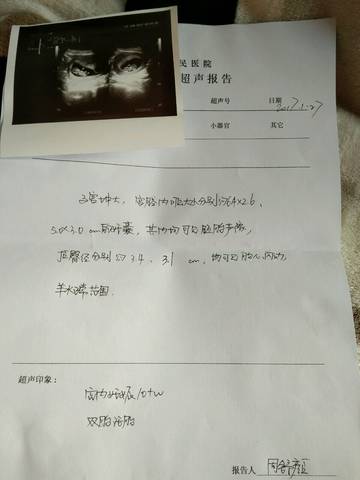 民医院
超声报告
超声号 日期 2017.1.27
小器官 其它
子宫增大，宫腔内可见大小分别约5.4×2.6，
5.0×3.0 cm孕囊，其内均可见胚胎声像，
顶臀径分别约3.4、3.1 cm，均可见胎心闪动，
羊水 范围
超声印象：
宫内妊娠10+w
双胎活胎
报告人